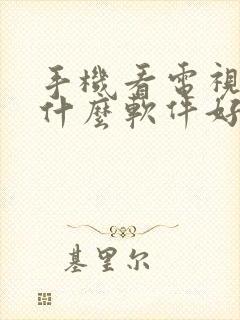 手機看電視
什麼軟件好
基里尔